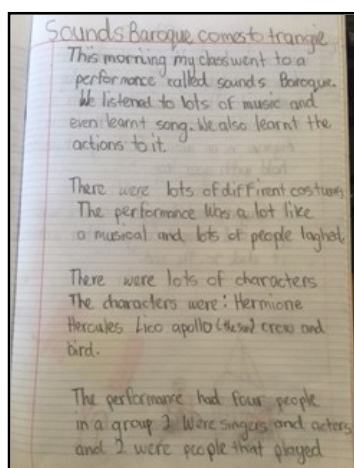 Sounds Baroque comes to trangie
This morning my class went to a
performance called sounds Baroque.
We listened to lots of music and
even learnt song. We also learnt the
actions to it.
There were lots of diffirent costumes
The performance was a lot like
a musical and lots of people laghet.
There were lots of characters
The characters were: Hermione
Hercules Lico apollo (the sun) crow and
bird.
The performance had four people
in a group 2 were singers and acters
and 2 were people that played